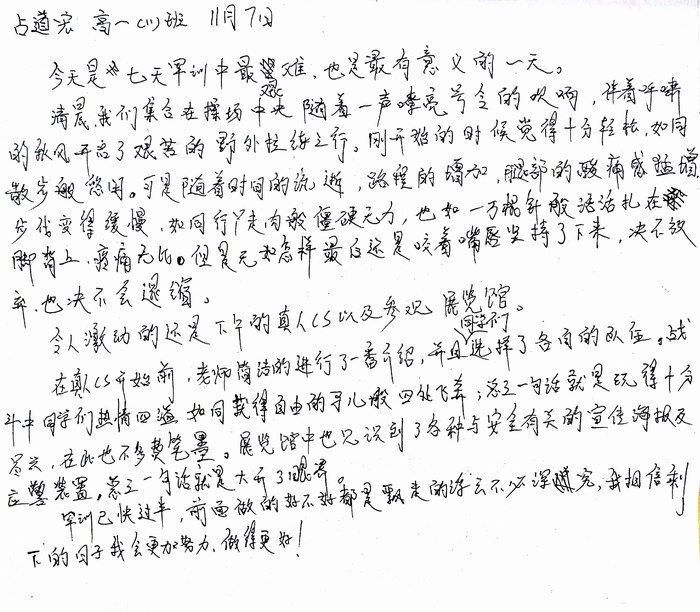 占道宏 高一(11)班 11月7日
今天是七天军训中最艰难,也是最有意义的一天。
清晨,我们集合在操场中央 随着一声嘹亮号令的吹响,伴着呼啸
的秋风开启了艰苦的野外拉练之行。刚开始的时候觉得十分轻松,如同
散步般悠闲。可是随着时间的流逝,路程的增加,腿部的酸痛感猛增,
步伐变得缓慢,如同行尸走肉般僵硬无力,也如一万根针般活活扎在
脚背上,疼痛无比。但是无如怎样最后还是咬着嘴唇坚持了下来,决不放
弃,也决不会退缩。
令人激动的还是下午的真人CS以及参观 展览馆。
在真人CS开始前,老师简洁的进行了一番介绍,并且同学们选择了各自的队伍。战
斗中同学们热情四溢 如同获得自由的鸟儿般四处飞奔;总之一句话就是玩得十分
尽兴,在此也不多费笔墨。展览馆中也见识到了各种与安全有关的宣传海报及
应装置。总之一句话就是大开了眼界。
军训已快过半,前面做的好不好都是飘走的浮云不必深究,我相信剩
下的日子我会更加努力,做得更好!